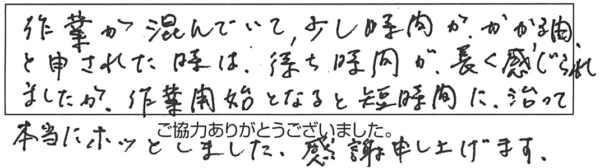 作業が混んでいて、少し時間が、かかる由、
と申された時は、待ち時間が、長く感じられ
ましたが、作業開始となると短時間に、治って
ご協力ありがとうございました。
本当にホッとしました、感謝申し上げます。